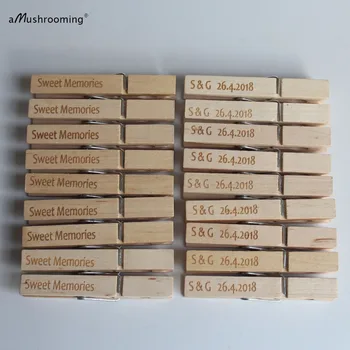 aMushrooming®
Sweet Memories
Sweet Memories
Sweet Memories
Sweet Memories
Sweet Memories
Sweet Memories
Sweet Memories
Sweet Memories
Sweet Memories
S & G 26.4.2018
S & G 26.4.2018
S & G 26.4.2018
S & G 26.4.2018
S & G 26.4.2018
S & G 26.4.2018
S & G 26.4.2018
S & G 26.4.2018
S & G 26.4.2018